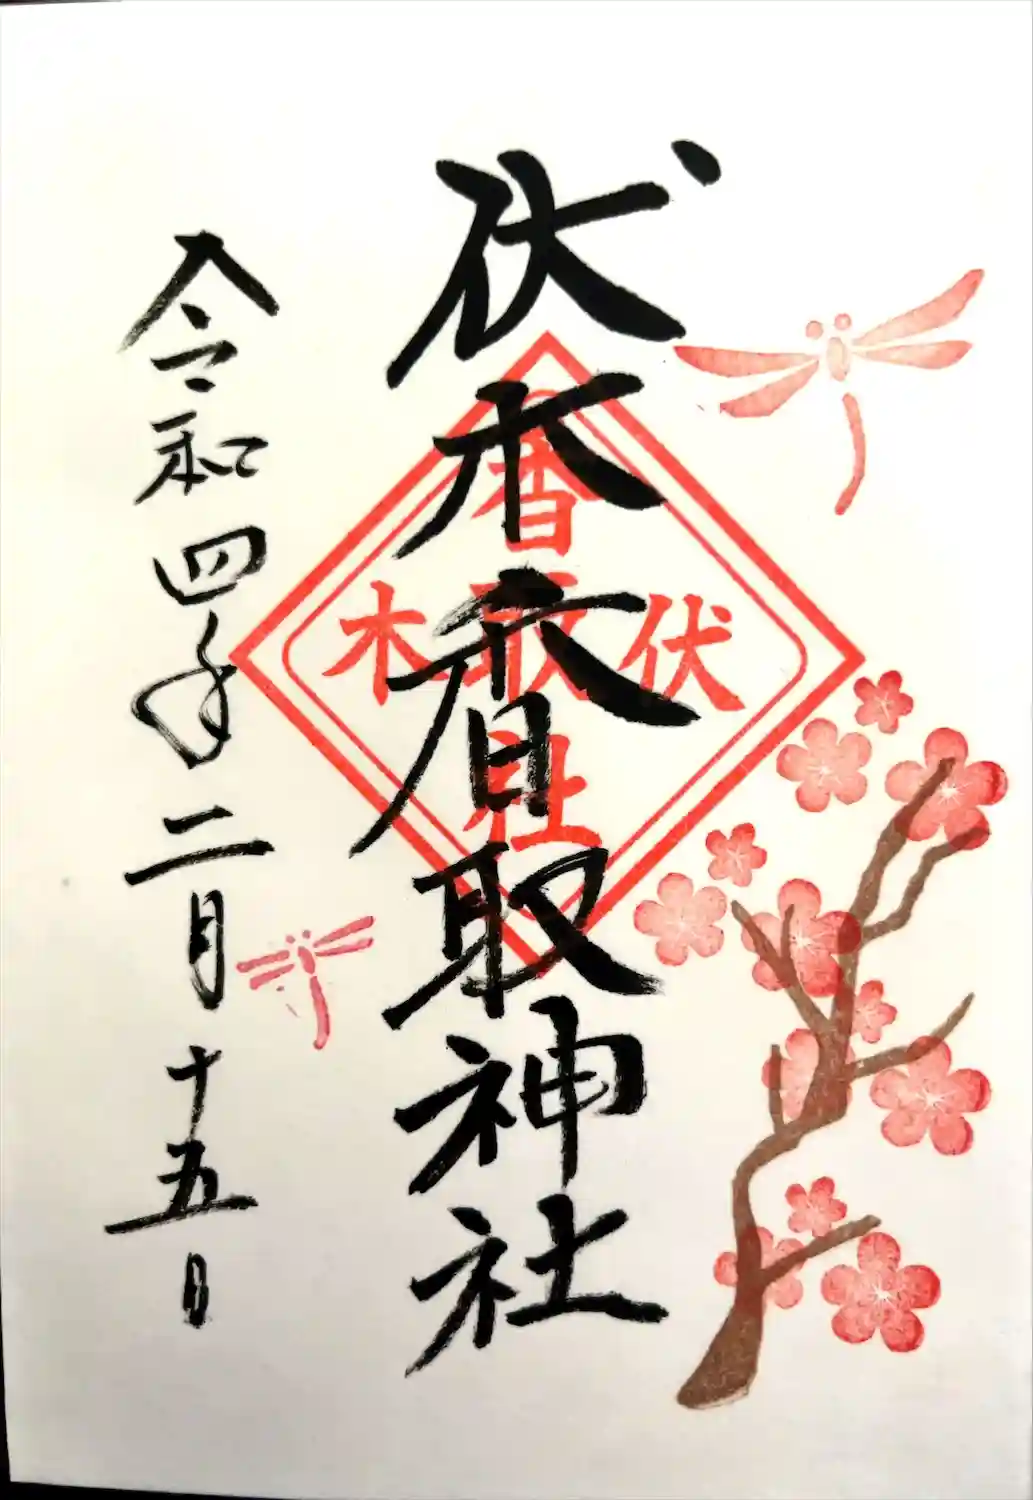 伏木香取神社
伏
香取社
木
令和四年二月十五日